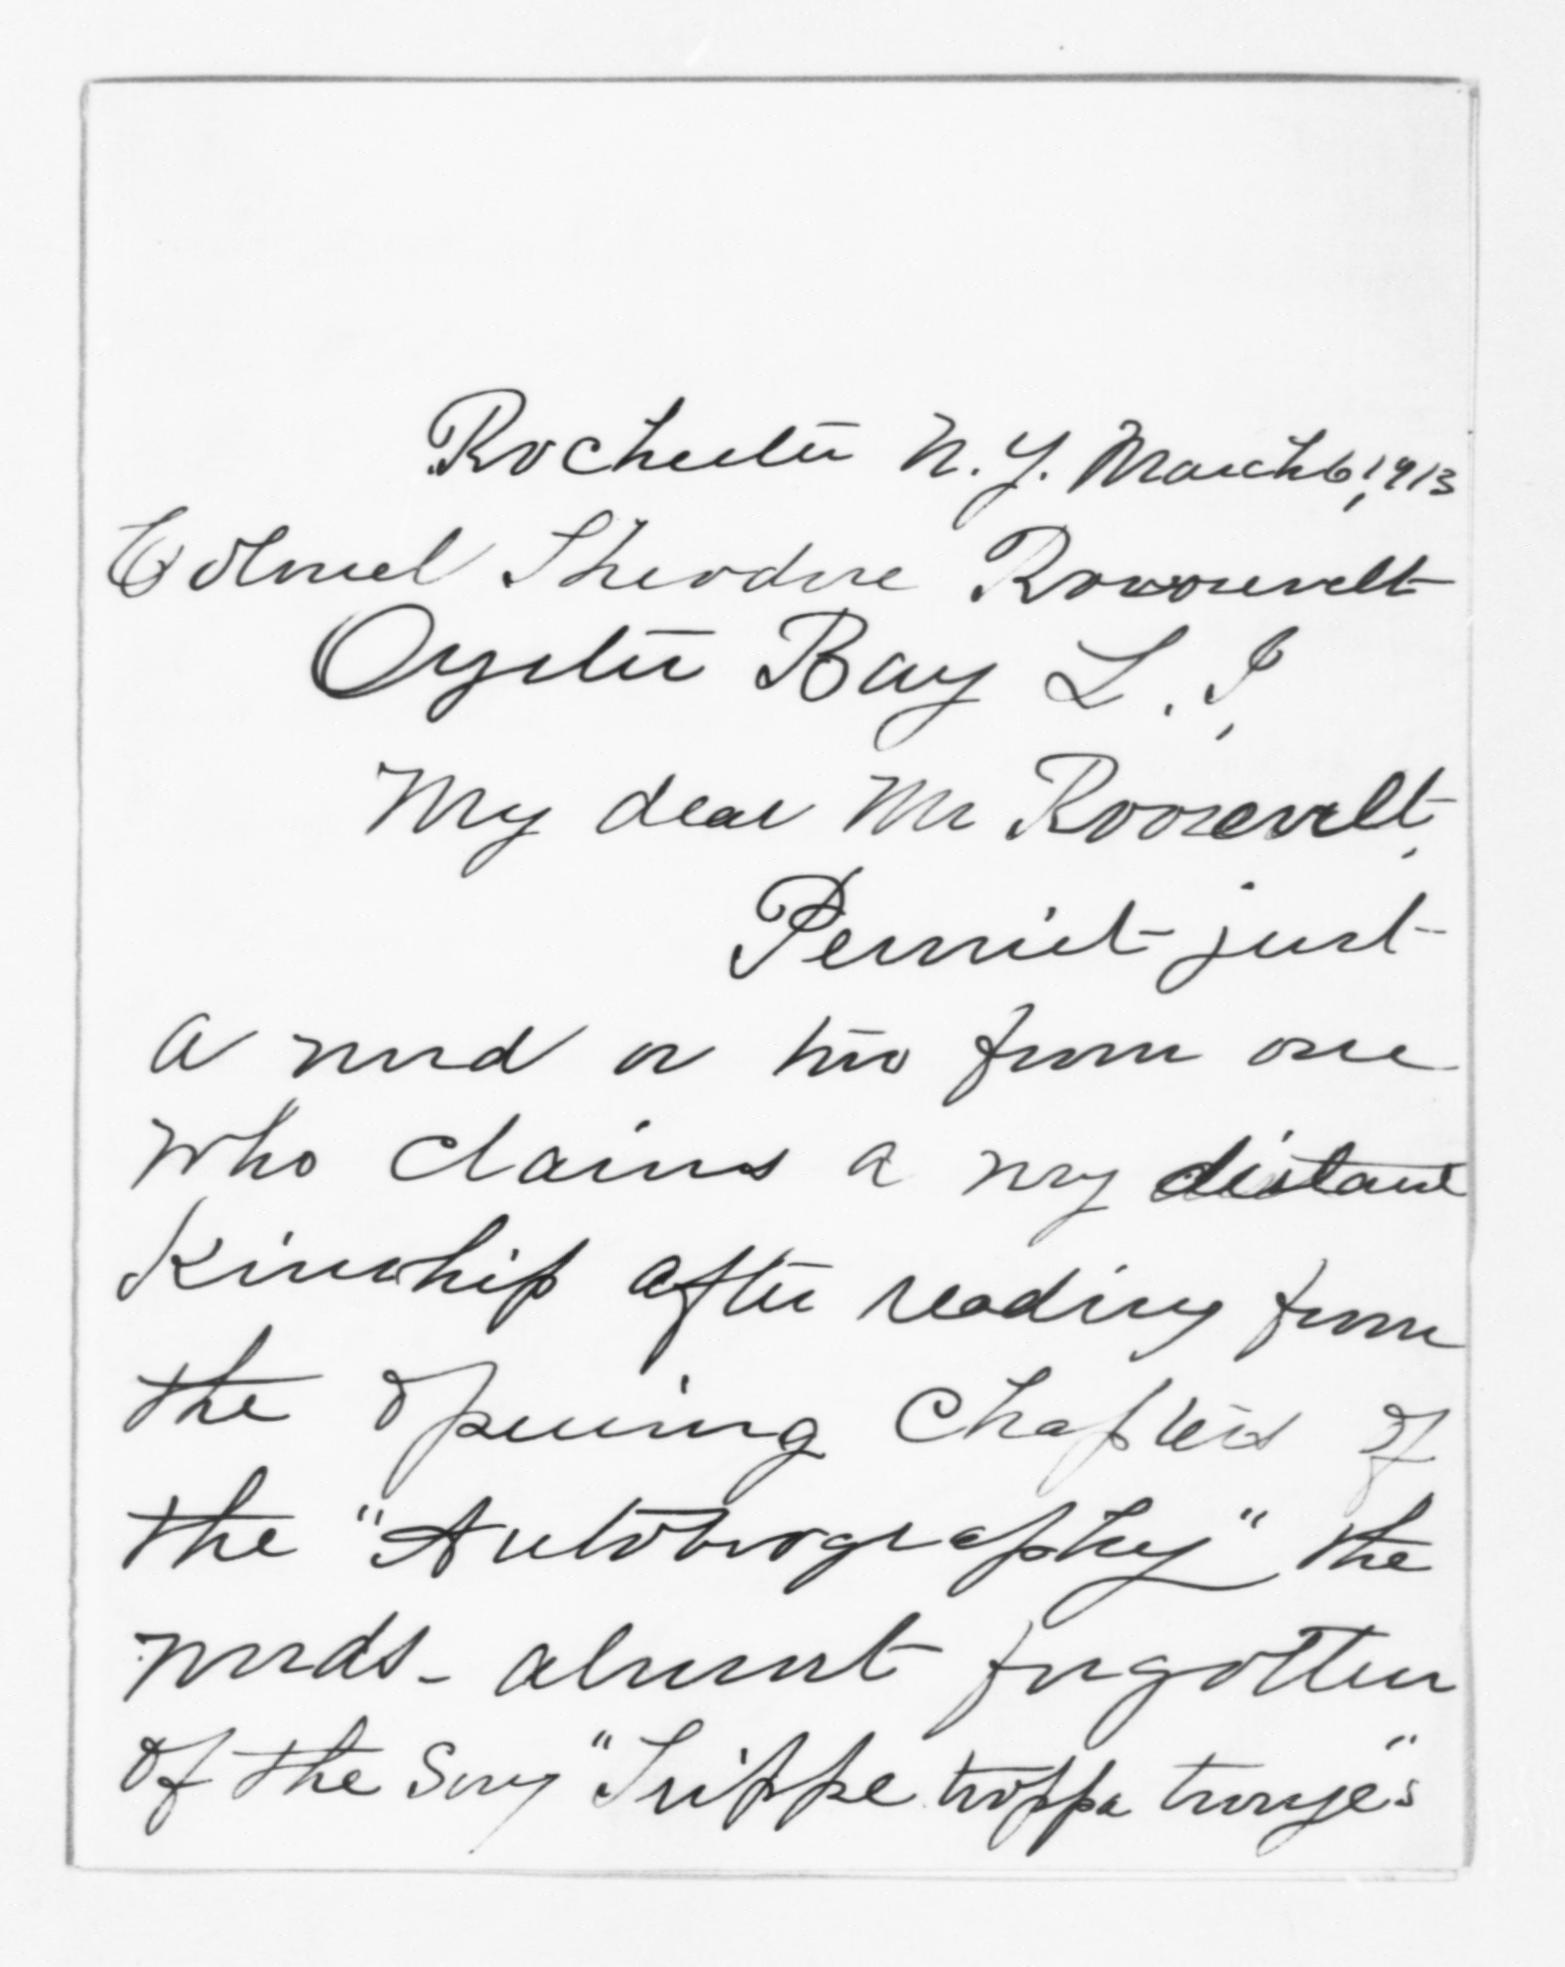 Rochester N.Y. March 6, 1913
Colonel Theodore Roosevelt
Oyster Bay L.I,
My dear Mr Roosevelt,
Permit just
a word or two from one
who claims a very distant
Kinship after reading from
the opening Chapters of
the "Autobiography" the
words - almost forgotten
of the song "Trippe troppa tronjes"